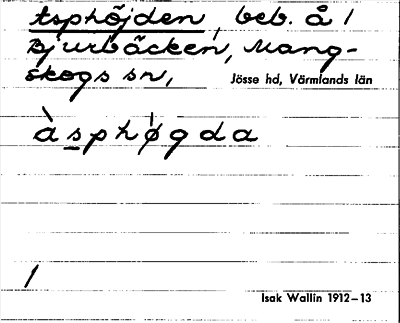 Asphöjden, beb. å 1
Bjurbäcken, Mang-
skogs sn,
Jösse hd, Värmlands län
àsphø̀gda
/
Isak Wallin 1912–13